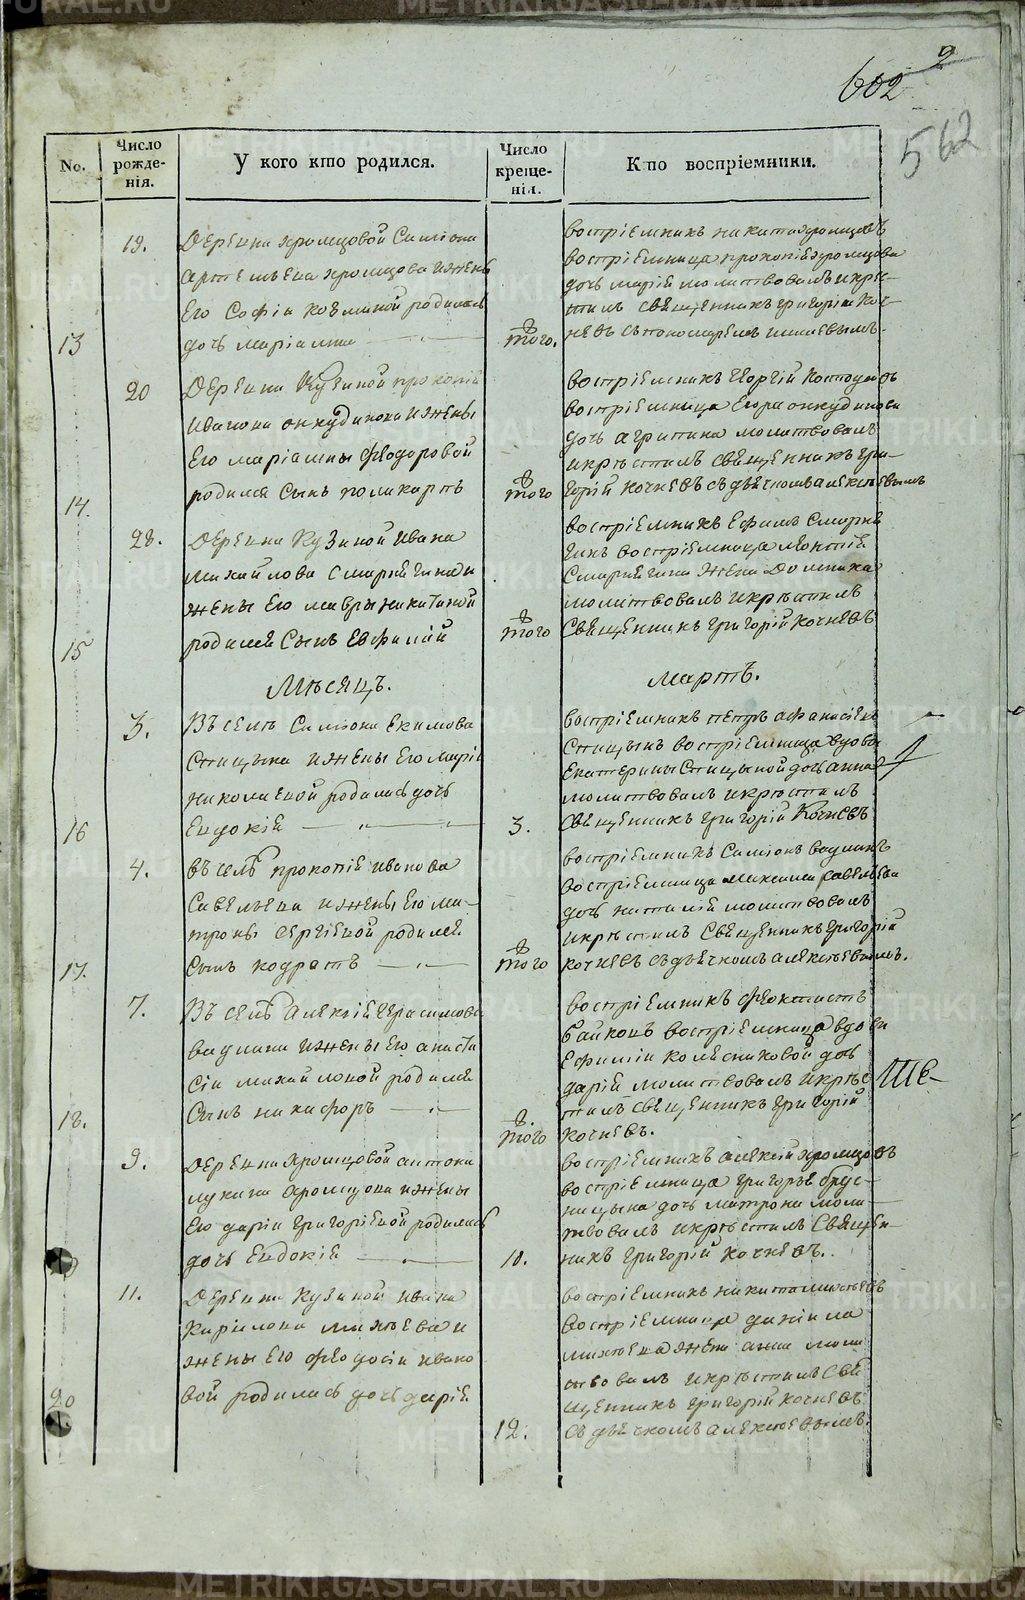 602 2
562
No.
Число рожде-нія.
У кого кто родился.
Число креще-нія.
Кто воспріемники.
13
19.
Деревни хромцовой Симиона
Артемьева хромцова и жены
Его Софіи Козминой родилась
дочь маріамна
того.
воспріемникъ никита хромцовъ
воспріемница прокопія хромцова
дочь марія молитвовалъ и кре-
стилъ священникъ григорій Коч-
невъ съ пономаремъ
14.
20
Деревни Кузиной прокопія
Иванова онкудинова и жены
Его маріамны феодоровой
родился сынъ поликарпъ
того
воспріемникъ Георгій
воспріемница Егора онкудинова
дочь агрипина молитвовалъ
и крестилъ священникъ гри-
горій кочневъ съ дьячкомъ алексеевымъ
15
28.
Деревни Кузиной ивана
михайлова
жены его мавры никитиной
родился Сынъ Евфимій
того
воспріемникъ Ефимъ
воспріемница леонтія
жена Домника
молитвовалъ и крестилъ
Священникъ григорій кочневъ
Мѣсяцъ.
Мартъ.
16
3.
Въ селѣ Симиона Екимова
Спицына и жены Его Маріи
николаевой родилась дочь
Евдокія
3.
воспріемникъ петръ афанасіевъ
Спицынъ воспріемница вдовы
Екатерины Спицыной дочь анна
молитвовалъ и крестилъ
священникъ григорій Кочневъ
17.
4.
въ селѣ прокопія иванова
Савельева и жены его ма-
троны сергіевой родился
Сынъ кодратъ
того
воспріемникъ Симионъ вадминъ
воспріемница Савельева
дочь наталія молитвовалъ
и крестилъ Священникъ григорій
кочневъ съ дьячкомъ алексеевымъ.
18.
7.
Въ селѣ Алексія Герасимова
вадмина и жены Его анаста
сіи михайловой родился
Сынъ никифоръ
того
воспріемникъ феоктистъ
байковъ воспріемница вдовы
Ефиміи колесниковой дочь
дарія молитвовалъ и кре
стилъ священникъ григорій
кочневъ.
9.
Деревни хромцовой антона
лукина хромцова и жены
Его даріи григоріевой родилась
дочь Евдокія
10.
воспріемникъ алексій хромцовъ
воспріемница григорья брус-
ницына дочь матрона моли
твовалъ и крестилъ Священ-
никъ григорій кочневъ.
20
11.
Деревни Кузиной ивана
Кирилова михеева и
жены Его феодосіи ивано
вой родилась дочь дарія
12.
воспріемникъ никита михеевъ
воспріемница даніила
михеева жена анна моли
твовалъ и крестилъ Свя
щенникъ григорій кочневъ
съ дьячкомъ алексеевымъ.